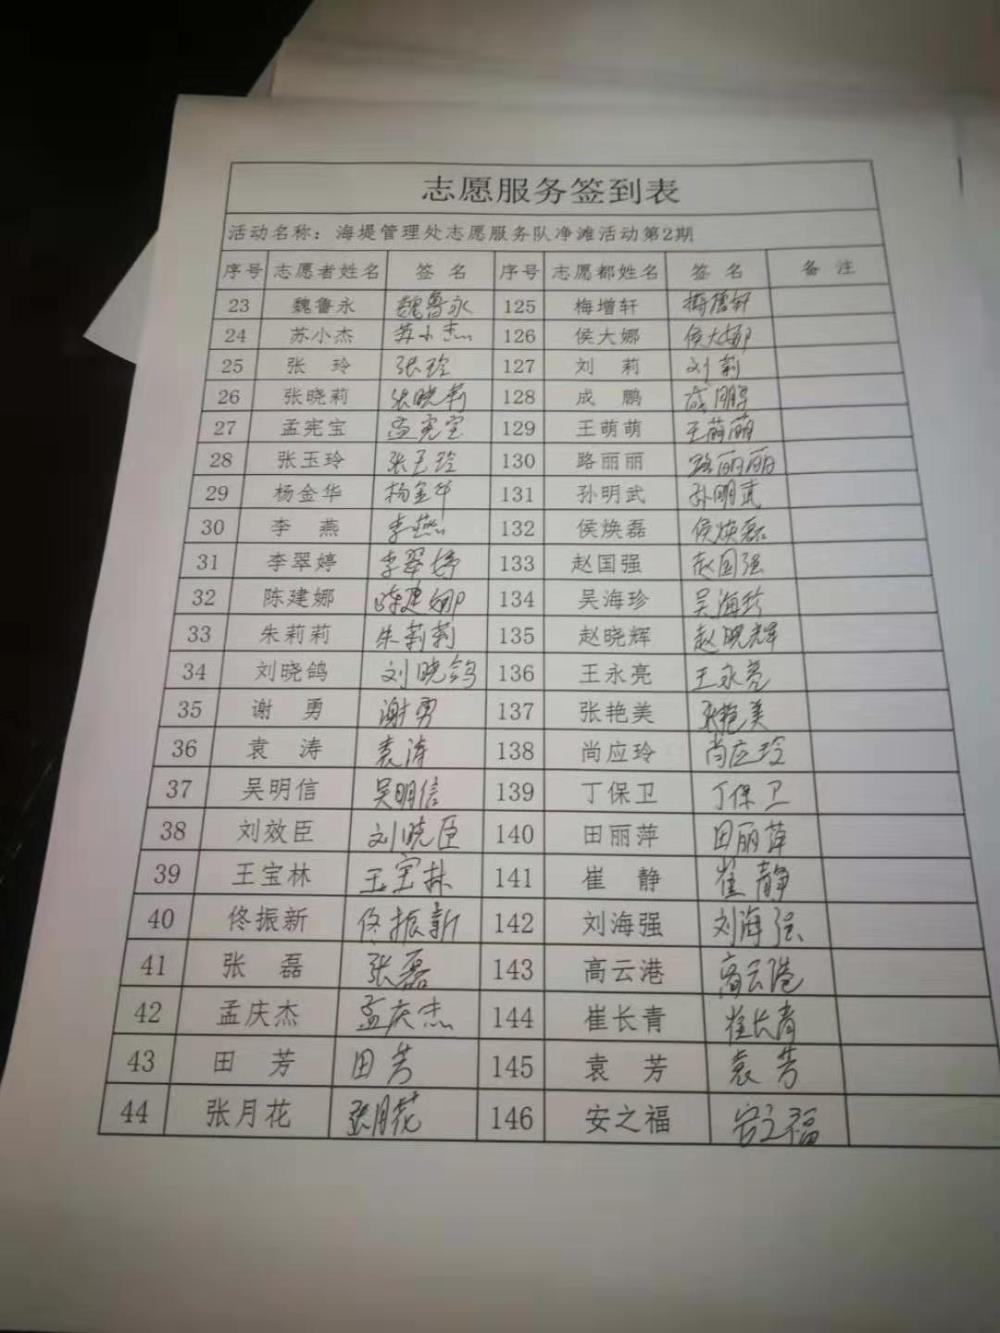 志愿服务签到表
活动名称：海堤管理处志愿服务队净滩活动第2期
序号 志愿者姓名 签 名 序号 志愿都姓名 签 名 备 注
23 魏鲁永 魏鲁永 125 梅增轩 梅增轩
24 苏小杰 苏小杰 126 侯大娜 侯大娜
25 张 玲 张玲 127 刘 莉 刘莉
26 张晓莉 张晓莉 128 成 鹏 成鹏
27 孟宪宝 孟宪宝 129 王萌萌 王萌萌
28 张玉玲 张玉玲 130 路丽丽 路丽丽
29 杨金华 杨金华 131 孙明武 孙明武
30 李 燕 李燕 132 侯焕磊 侯焕磊
31 李翠婷 李翠婷 133 赵国强 赵国强
32 陈建娜 陈建娜 134 吴海珍 吴海珍
33 朱莉莉 朱莉莉 135 赵晓辉 赵晓辉
34 刘晓鸽 刘晓鸽 136 王永亮 王永亮
35 谢 勇 谢勇 137 张艳美 张艳美
36 袁 涛 袁涛 138 尚应玲 尚应玲
37 吴明信 吴明信 139 丁保卫 丁保卫
38 刘效臣 刘晓臣 140 田丽萍 田丽萍
39 王宝林 王宝林 141 崔 静 崔静
40 佟振新 佟振新 142 刘海强 刘海强
41 张 磊 张磊 143 高云港 高云港
42 孟庆杰 孟庆杰 144 崔长青 崔长青
43 田 芳 田芳 145 袁 芳 袁芳
44 张月花 张月花 146 安之福 安之福